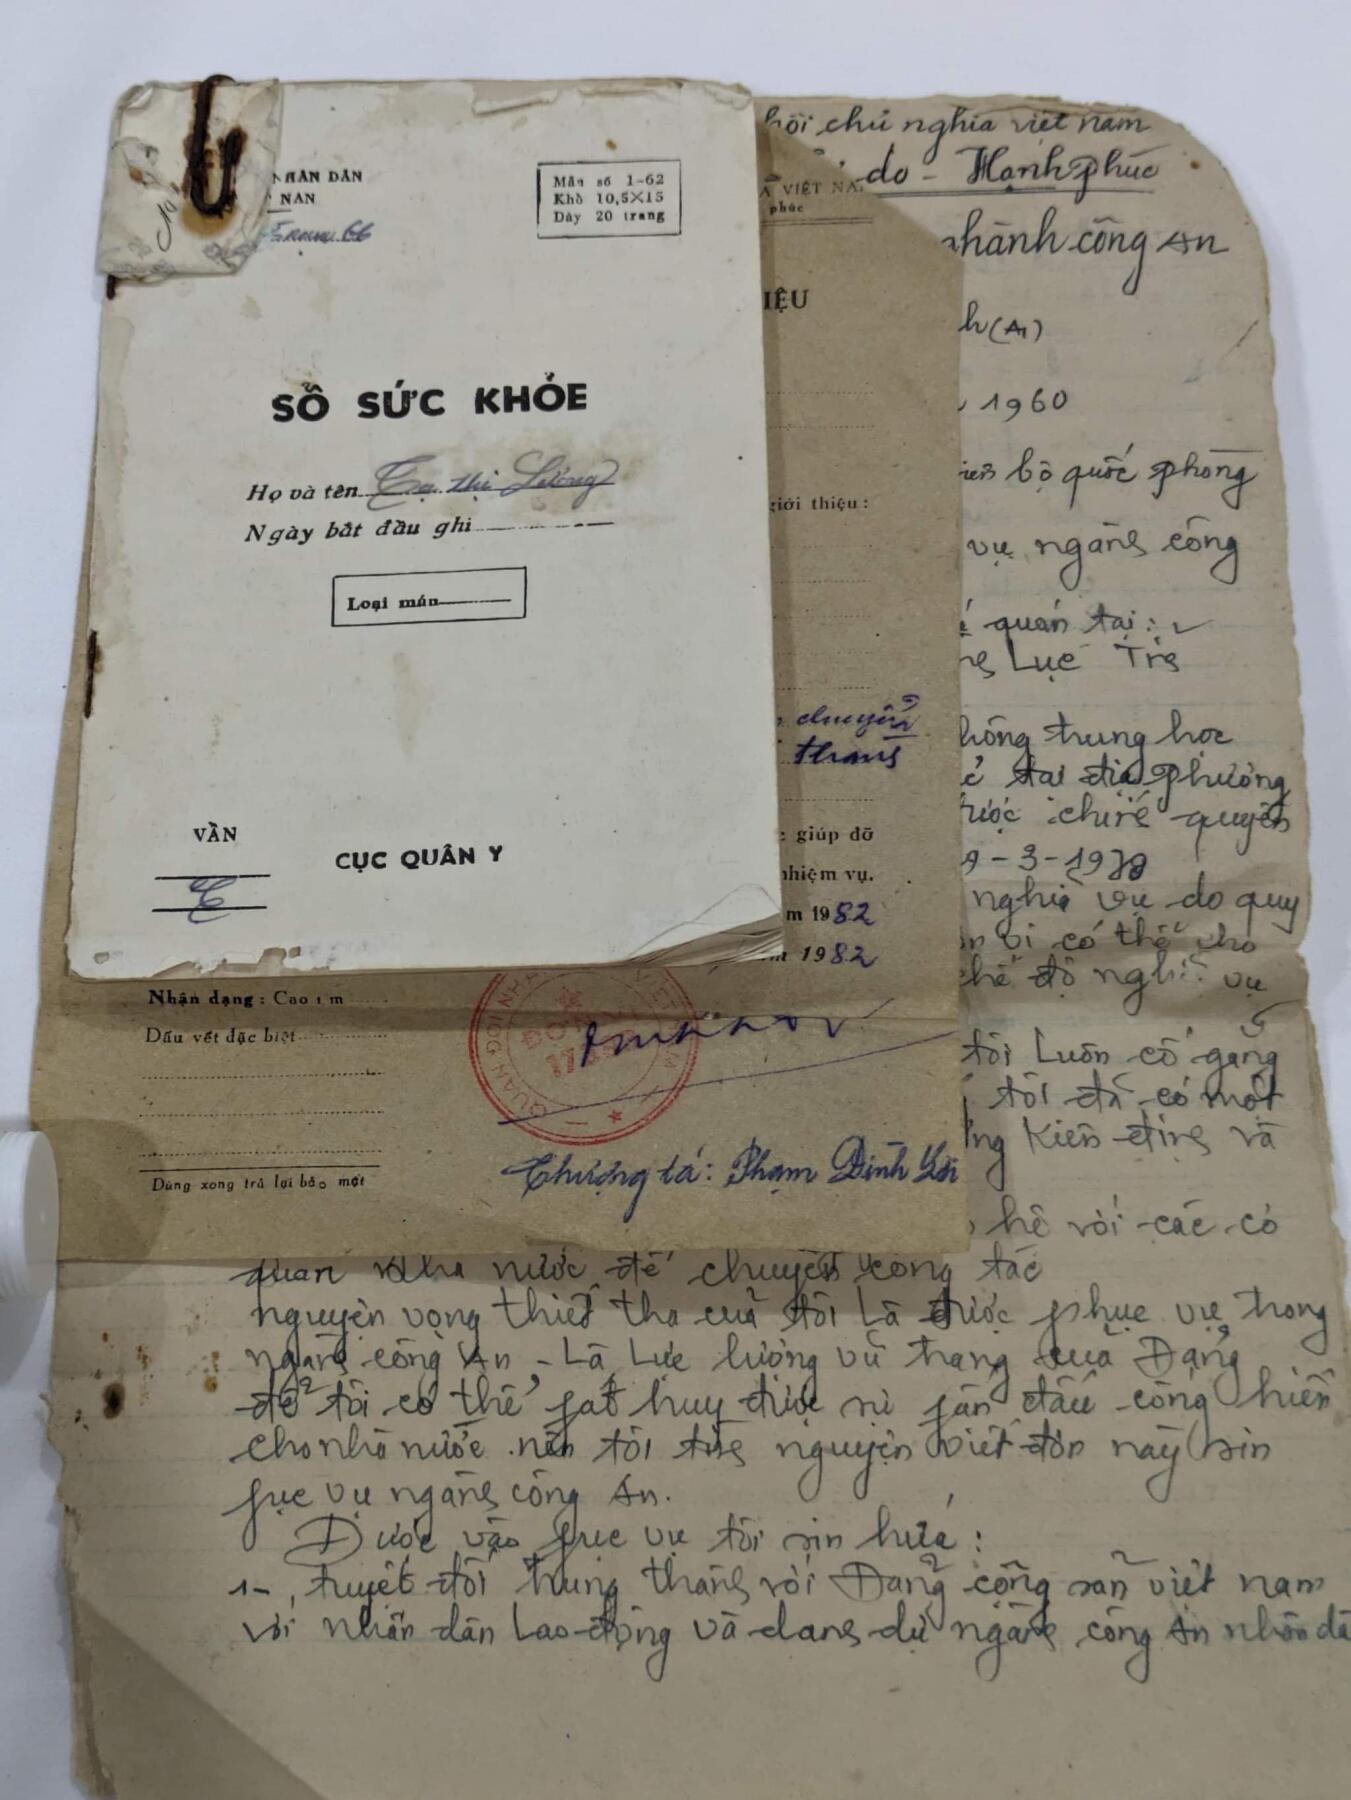 HÂN DÂN
NAN
Mẫu số 1-62
Khổ 10,5×15
Dày 20 trang
SỔ SỨC KHỎE
Họ và tên Tạ thị Lương
Ngày bắt đầu ghi
Loại máu
VẦN
T
CỤC QUÂN Y
VIỆT NA
phúc
IỆU
giới thiệu:
chuyển
thans
giúp đỡ
nhiệm vụ.
m 1982
m 1982
Nhận dạng: Cao 1 m
Dấu vết đặc biệt
Dùng xong trả lại bảo mật
Thượng tá: Phạm Đình
hội chủ nghĩa việt nam
do - Hạnh phúc
nhành công An
h (A1)
1960
bộ quốc phòng
vụ ngàng công
quán tại:
Lục
hông trung học
tại địa phương
ược chirế quyền
nghĩa vụ do quy
vị có thể cho
hế độ nghĩa vụ
tôi Luôn cố gắng
tôi đã có một
Kiên địng và
hệ với các cơ
quan nhà nước để chuyển công tác
nguyện vọng thiết tha của tôi Là được phục vụ trong
ngàng công An - Là Lực lượng vũ trang của Đảng
để tôi có thể fát huy được sự fấn đấu cống hiến
cho nhà nước nên tôi tực nguyện viết đơn này sin
fục vụ ngàng công An.
Được vào fục vụ tôi sin hứa:
1-, tuyệt đối trung thàng với Đảng cộng sản việt nam
với nhân dân Lao động và dang dự ngàng công An nhân dâ